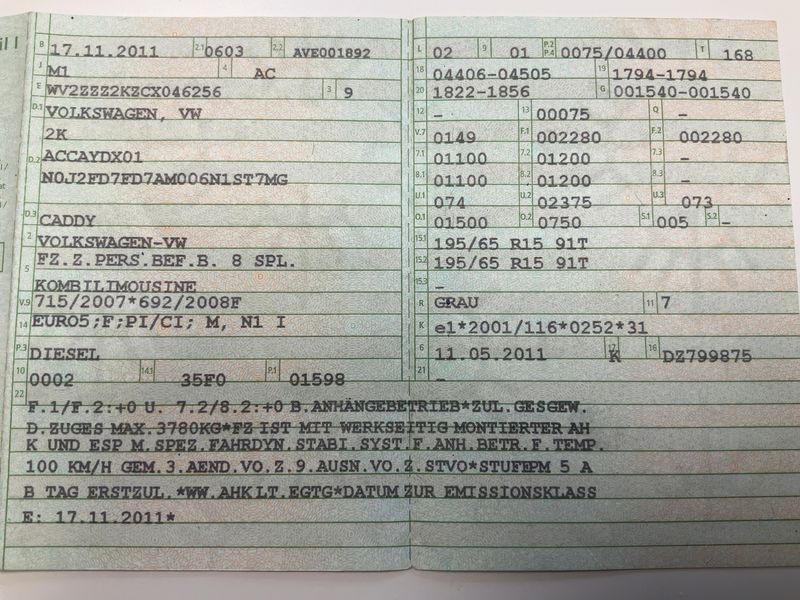 B 17.11.2011 2.1 0603 2.2 AVE001892
J M1 4 AC
E WV2ZZZ2KZCX046256 3 9
D.1 VOLKSWAGEN, VW
2K
D.2 ACCAYDX01
N0J2FD7FD7AM006N1ST7MG
D.3 CADDY
2 VOLKSWAGEN-VW
5 FZ.Z.PERS.BEF.B. 8 SPL.
KOMBILIMOUSINE
V.9 715/2007*692/2008F
14 EURO5;F;PI/CI; M, N1 I
P.3 DIESEL
10 0002 14.1 35F0 P.1 01598
L 02 9 01 P.2 P.4 0075/04400 T 168
18 04406-04505 19 1794-1794
20 1822-1856 G 001540-001540
12 - 13 00075 Q -
V.7 0149 F.1 002280 F.2 002280
7.1 01100 7.2 01200 7.3 -
8.1 01100 8.2 01200 8.3 -
U.1 074 U.2 02375 U.3 073
O.1 01500 O.2 0750 S.1 005 S.2 -
15.1 195/65 R15 91T
15.2 195/65 R15 91T
15.3 -
R GRAU 11 7
K e1*2001/116*0252*31
6 11.05.2011 17 K 16 DZ799875
21 -
22 F.1/F.2:+0 U. 7.2/8.2:+0 B.ANHÄNGEBETRIEB*ZUL.GESGEW.
D.ZUGES MAX.3780KG*FZ IST MIT WERKSEITIG MONTIERTER AH
K UND ESP M.SPEZ.FAHRDYN.STABI.SYST.F.ANH.BETR.F.TEMP.
100 KM/H GEM.3.AEND.VO.Z.9.AUSN.VO.Z.STVO*STUFEPM 5 A
B TAG ERSTZUL.*WW.AHK LT.EGTG*DATUM ZUR EMISSIONSKLASS
E: 17.11.2011*